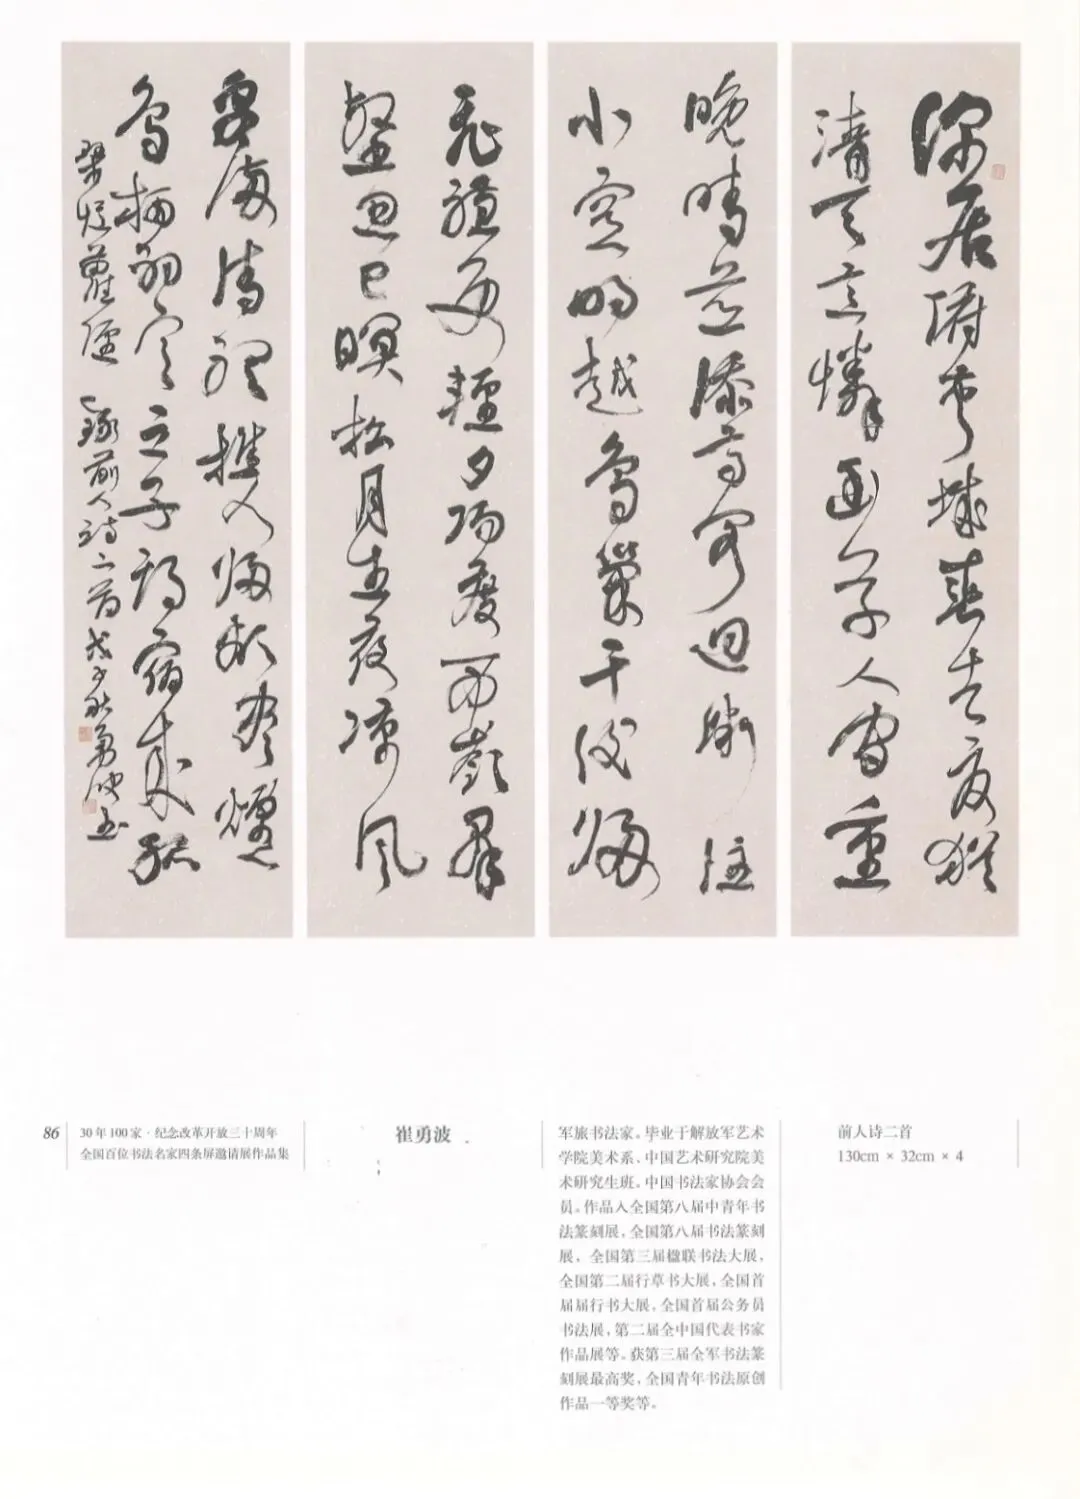 深居俯夹城春去夏猶
清天意憐幽草人間重
晚晴並添高閣迥微注
小窗明越鳥巢干後歸
飛體更輕夕陽度西嶺群
壑忽已暝松月生夜凉風
泉滿清聽樵人歸欲盡煙
鳥栖初定之子期宿來孤
琴候蘿徑 錄前人詩二首戊子秋勇波書
86
30年100家·纪念改革开放三十周年
全国百位书法名家四条屏邀请展作品集
崔勇波
军旅书法家。毕业于解放军艺术
学院美术系、中国艺术研究院美
术研究生班。中国书法家协会会
员。作品入全国第八届中青年书
法篆刻展,全国第八届书法篆刻
展,全国第三届楹联书法大展,
全国第二届行草书大展,全国首
届届行书大展,全国首届公务员
书法展,第二届全中国代表书家
作品展等。获第三届全军书法篆
刻展最高奖,全国青年书法原创
作品一等奖等。
前人诗二首
130cm × 32cm × 4